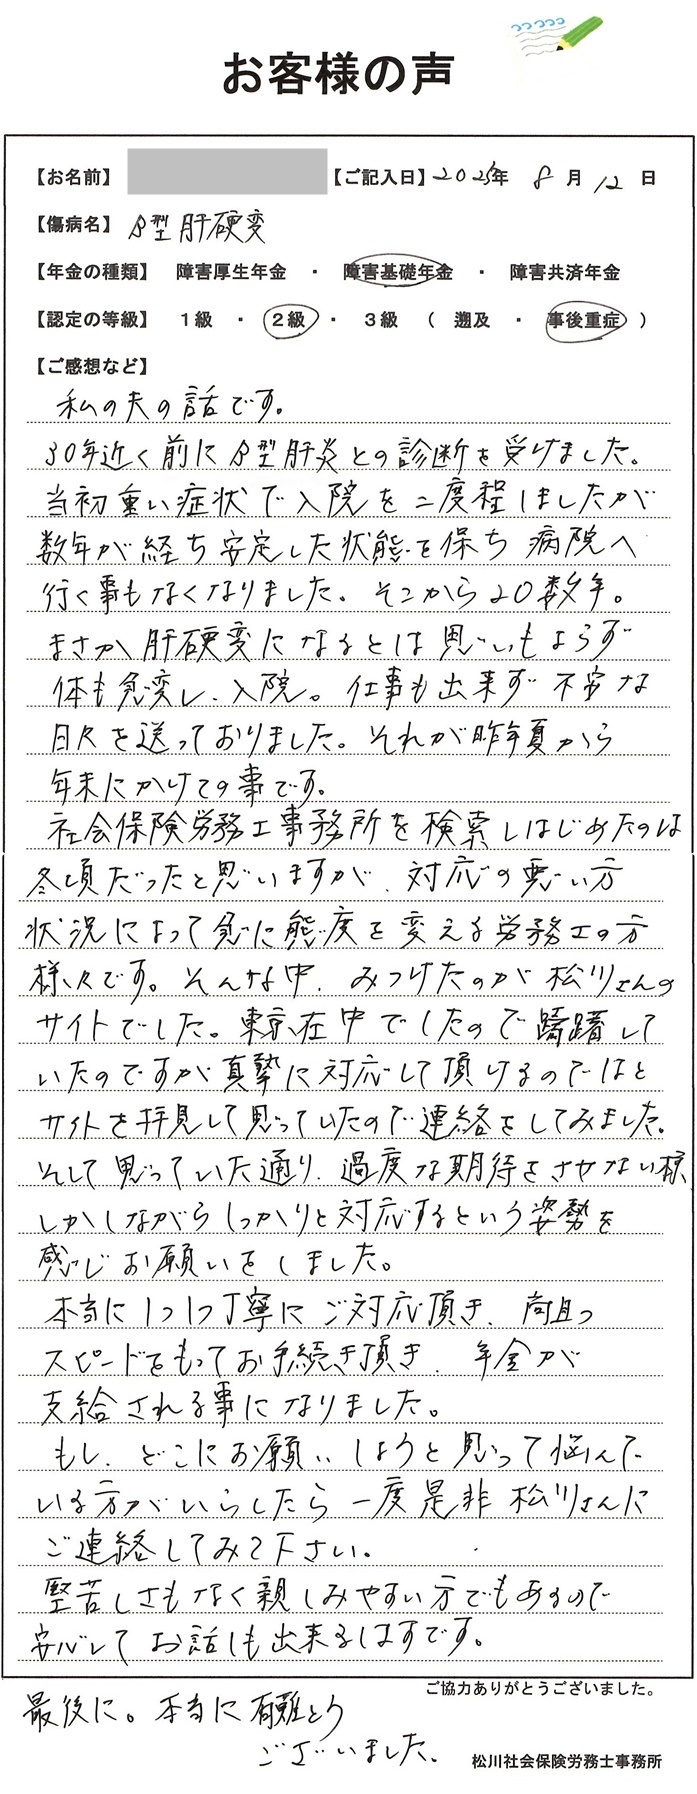 お客様の声
【お名前】 【ご記入日】2025年 8月12日
【傷病名】B型肝硬変
【年金の種類】 障害厚生年金 ・ 障害基礎年金 ・ 障害共済年金
【認定の等級】 1級 ・ 2級 ・ 3級 ( 遡及 ・ 事後重症 )
【ご感想など】
私の夫の話です。
30年近く前にB型肝炎との診断を受けました。
当初重い症状で入院を二度程しましたが
数年が経ち安定した状態を保ち病院へ
行く事もなくなりました。そこから20数年。
まさか肝硬変になるとは思いもよらず
体も急変し、入院。仕事も出来ず不安な
日々を送っておりました。それが昨年夏から
年末にかけての事です。
社会保険労務士事務所を検索しはじめたのは
冬頃だったと思いますが、対応の悪い方
状況によって急に態度を変える労務士の方
様々です。そんな中、みつけたのが松川さんの
サイトでした。東京在中でしたので躊躇して
いたのですが真摯に対応して頂けるのではと
サイトを拝見して思っていたので連絡をしてみました。
そして思っていた通り、過度な期待をさせない様、
しかしながらしっかりと対応するという姿勢を
感じお願いをしました。
本当に1つ1つ丁寧にご対応頂き、尚且つ
スピードをもってお手続き頂き、年金が
支給される事になりました。
もし、どこにお願いしようと思って悩んで
いる方がいらしたら一度是非松川さんに
ご連絡してみて下さい。
堅苦しさもなく親しみやすい方でもあるので
安心してお話しも出来るはずです。
ご協力ありがとうございました。
最後に。本当に有難とう
ございました。
松川社会保険労務士事務所